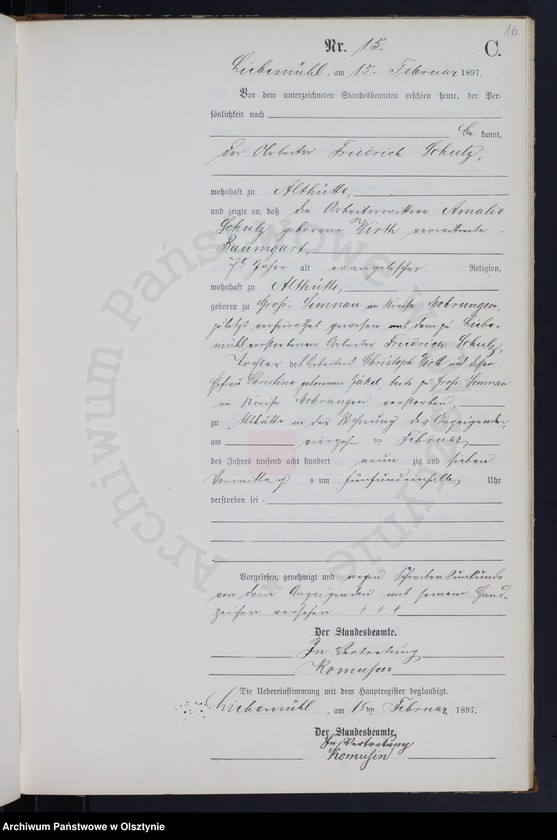 16
Nr. 15. C.
Liebemühl, am 15. Februar 1897.
Vor dem unterzeichneten Standesbeamten erschien heute, der Per-
sönlichkeit nach
be kannt,
der Arbeiter Friedrich Schulz,
wohnhaft zu Althütte,
und zeigte an, daß die Arbeiterwittwe Amalie
Schulz geborene Wirth verwittwete
Baumgart,
75 Jahre alt evangelischer Religion,
wohnhaft zu Althütte,
geboren zu Groß Simnau im Kreise Mohrungen,
zuletzt verheirathet gewesen mit dem zu Liebe-
mühl verstorbenen Arbeiter Friedrich Schulz,
Tochter des Arbeiters Christoph Wirth und dessen
Ehefrau Christine geborenen Jäkel, beide zu Groß Simnau
im Kreise Mohrungen verstorben,
zu Althütte in der Wohnung des Anzeigenden,
am vierzehn ten Februar
des Jahres tausend acht hundert neun zig und sieben
Vormittag s um fünfundeinhalb Uhr
verstorben sei.
Vorgelesen, genehmigt und wegen Schreibensunkunde
von dem Anzeigenden mit seinem Hand-
zeichen versehen + + +
Der Standesbeamte.
In Vertretung
Komusin
Die Uebereinstimmung mit dem Hauptregister beglaubigt.
Liebemühl, am 15ten Februar 1897.
Der Standesbeamte.
In Vertretung
Komusin
Archiwum Państwowe w Olsztynie
Archiwum Państwowe w Olsztynie